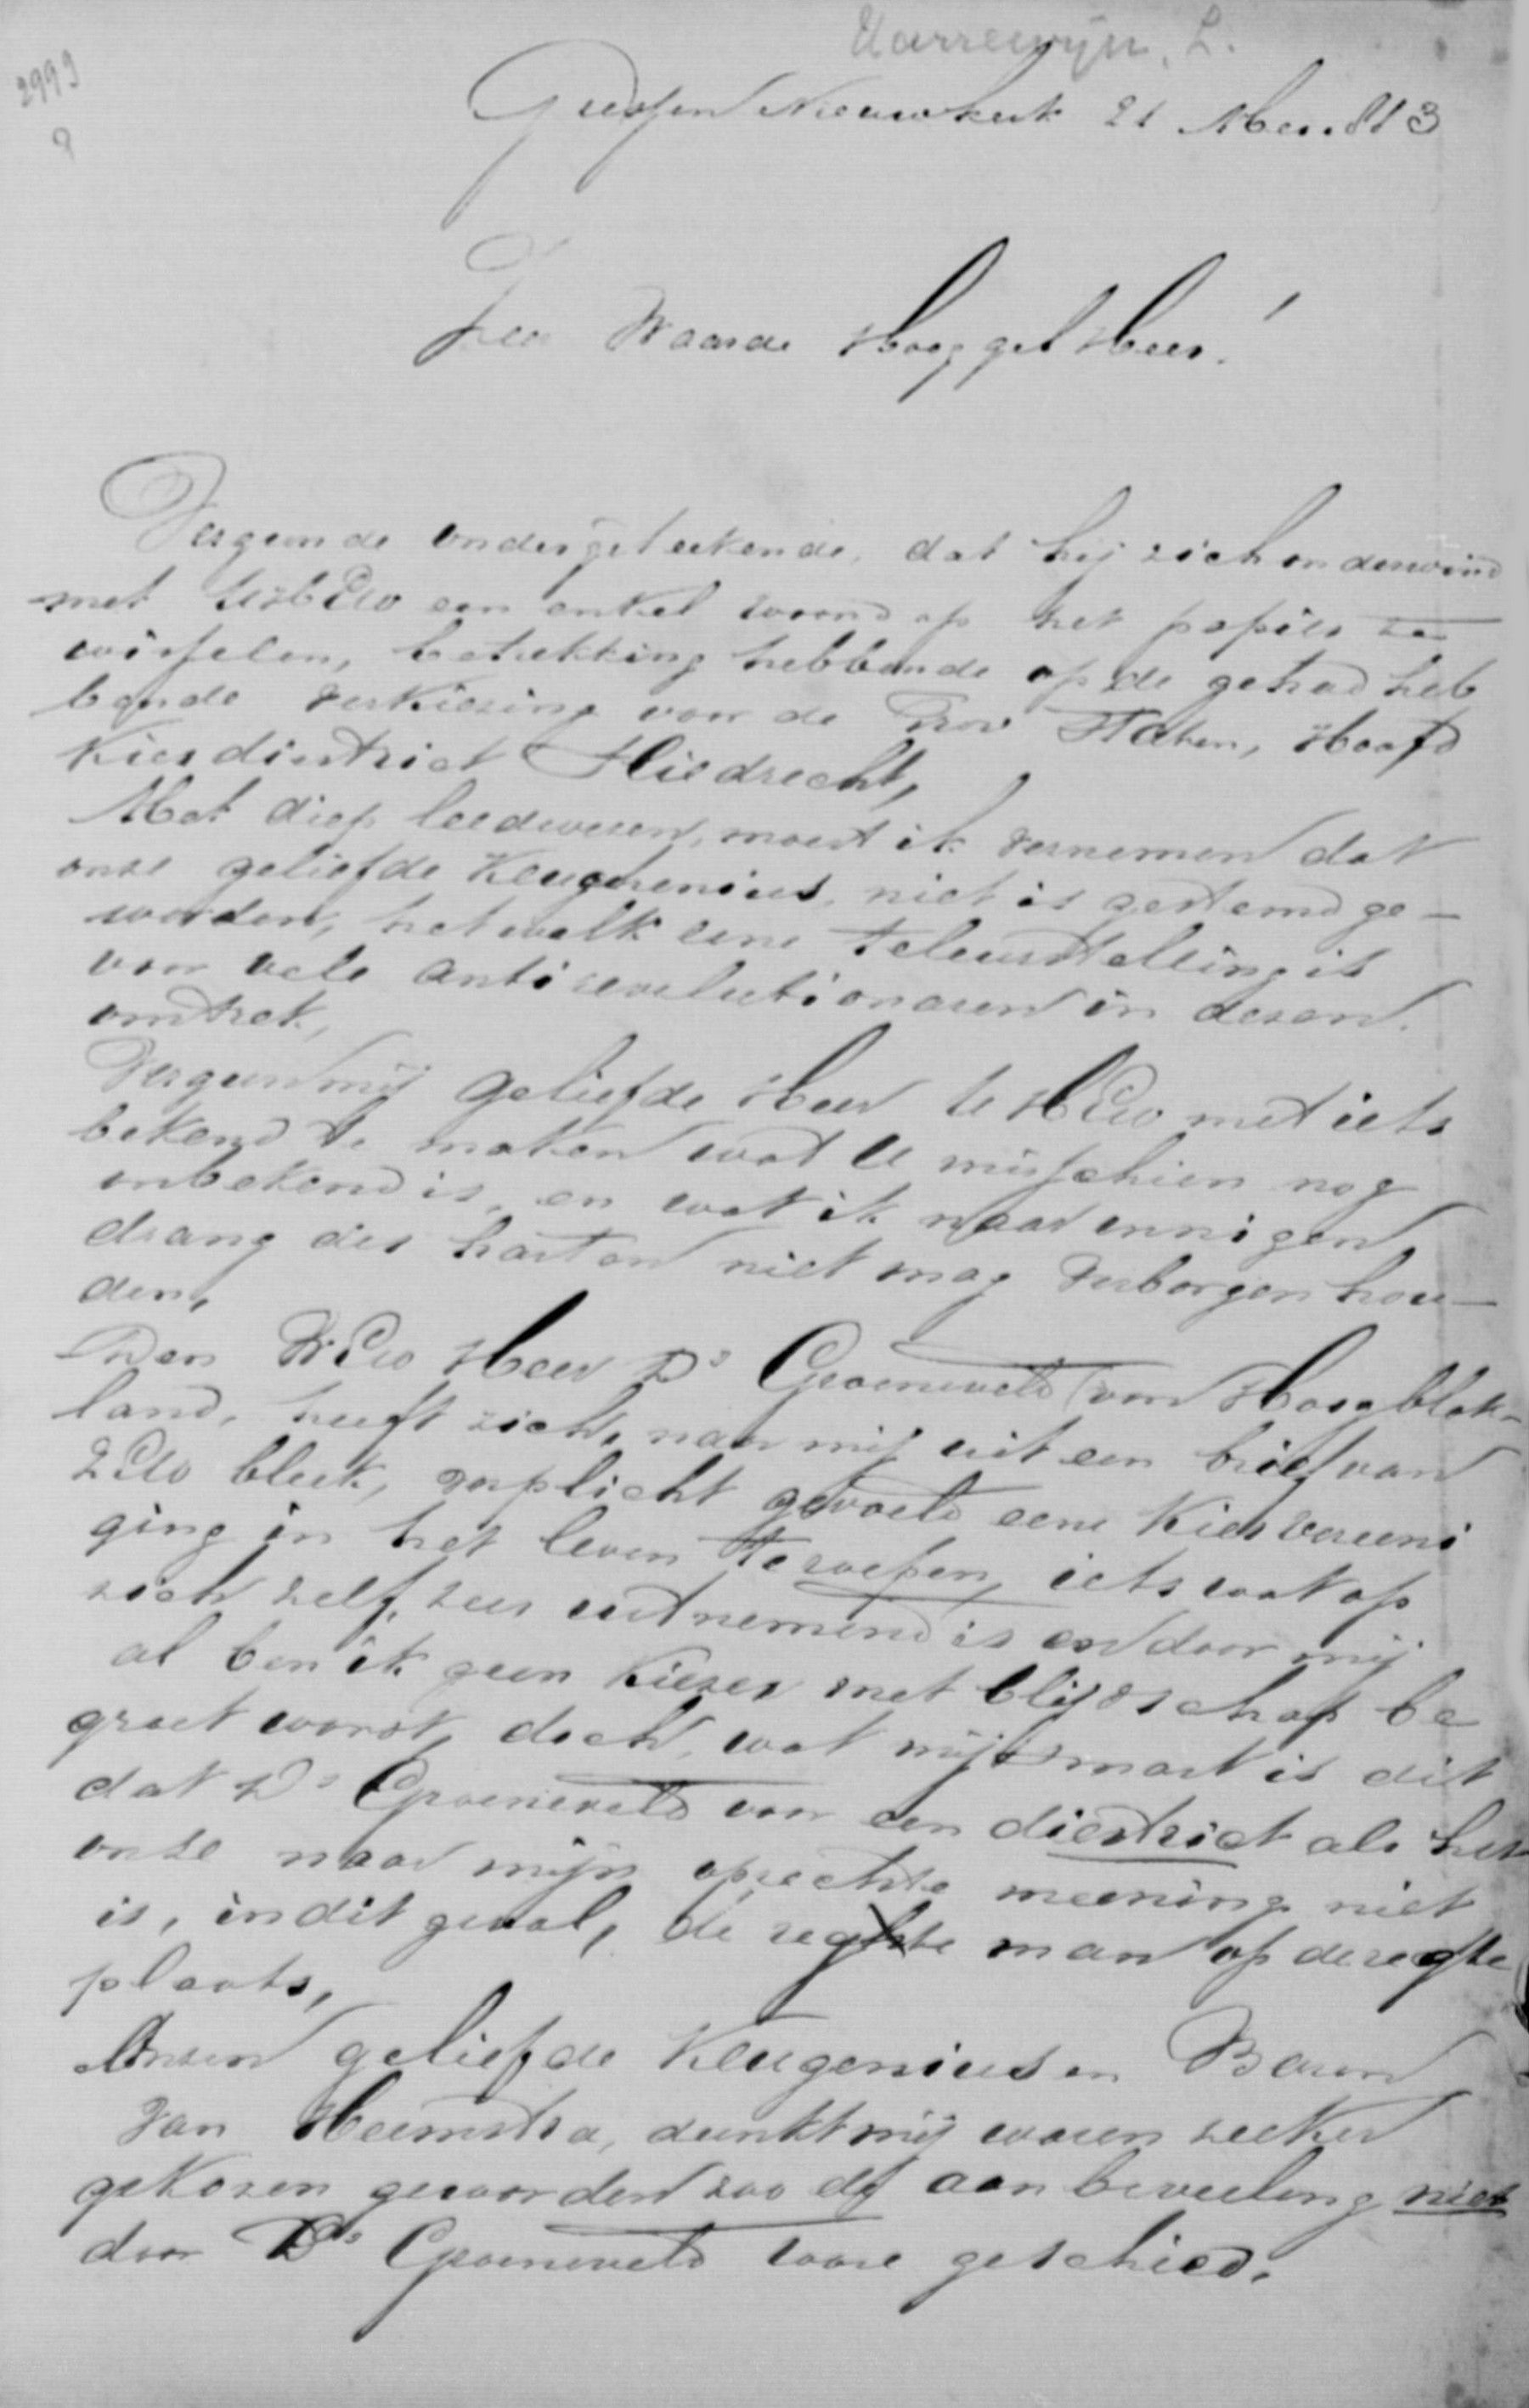 Warrewijn, L.
2999
Giessen Nieuwkerk 21 Mei 1883
Zeer Waarde Hooggel Heer!
Vergun de ondergeteekende, dat hij zich onderwind
met UHbEw een enkel woord op het papier te
wisselen, betrekking hebbende op de gehad heb
bende verkiezing voor de Prov Staten, Hoofd
Kiesdistrict Sliedrecht,
Met diep leedwezen, moest ik vernemen dat
onze geliefde Keughenius, niet is gestemd ge-
worden, hetwelk eene teleurstelling is
voor vele antirevolutionaren in dezen
omtrek,
Vergun mij geliefde Heer U HEw met iets
bekend te maken wat U misschien nog
onbekend is, en wat ik naar innigen
drang des harten niet mag verborgen hou-
den,
Den WEw Heer Ds Groeneveld van Hoogblok-
land, heeft zich, naar mij uit een brief van
ZEw bleek, verplicht gevoeld eene Kiesvereeni
ging in het leven te roepen, iets wat op
zich zelf, zeer uitnemend is en door mij
al ben ik geen Kiezer met blijdschap be
groet wordt, doch, wat mij smart is dit
dat Ds Groeneveld voor een district als het
onze naar mijn oprechte meening niet
is, in dit geval, de regte man op de regte
plaats,
Onzen geliefde Keugenius en Baron
Van Heemstra, dunkt mij waren zeker
gekozen geworden zoo de aanbeveeling niet
door Ds Groeneveld ware geschied.